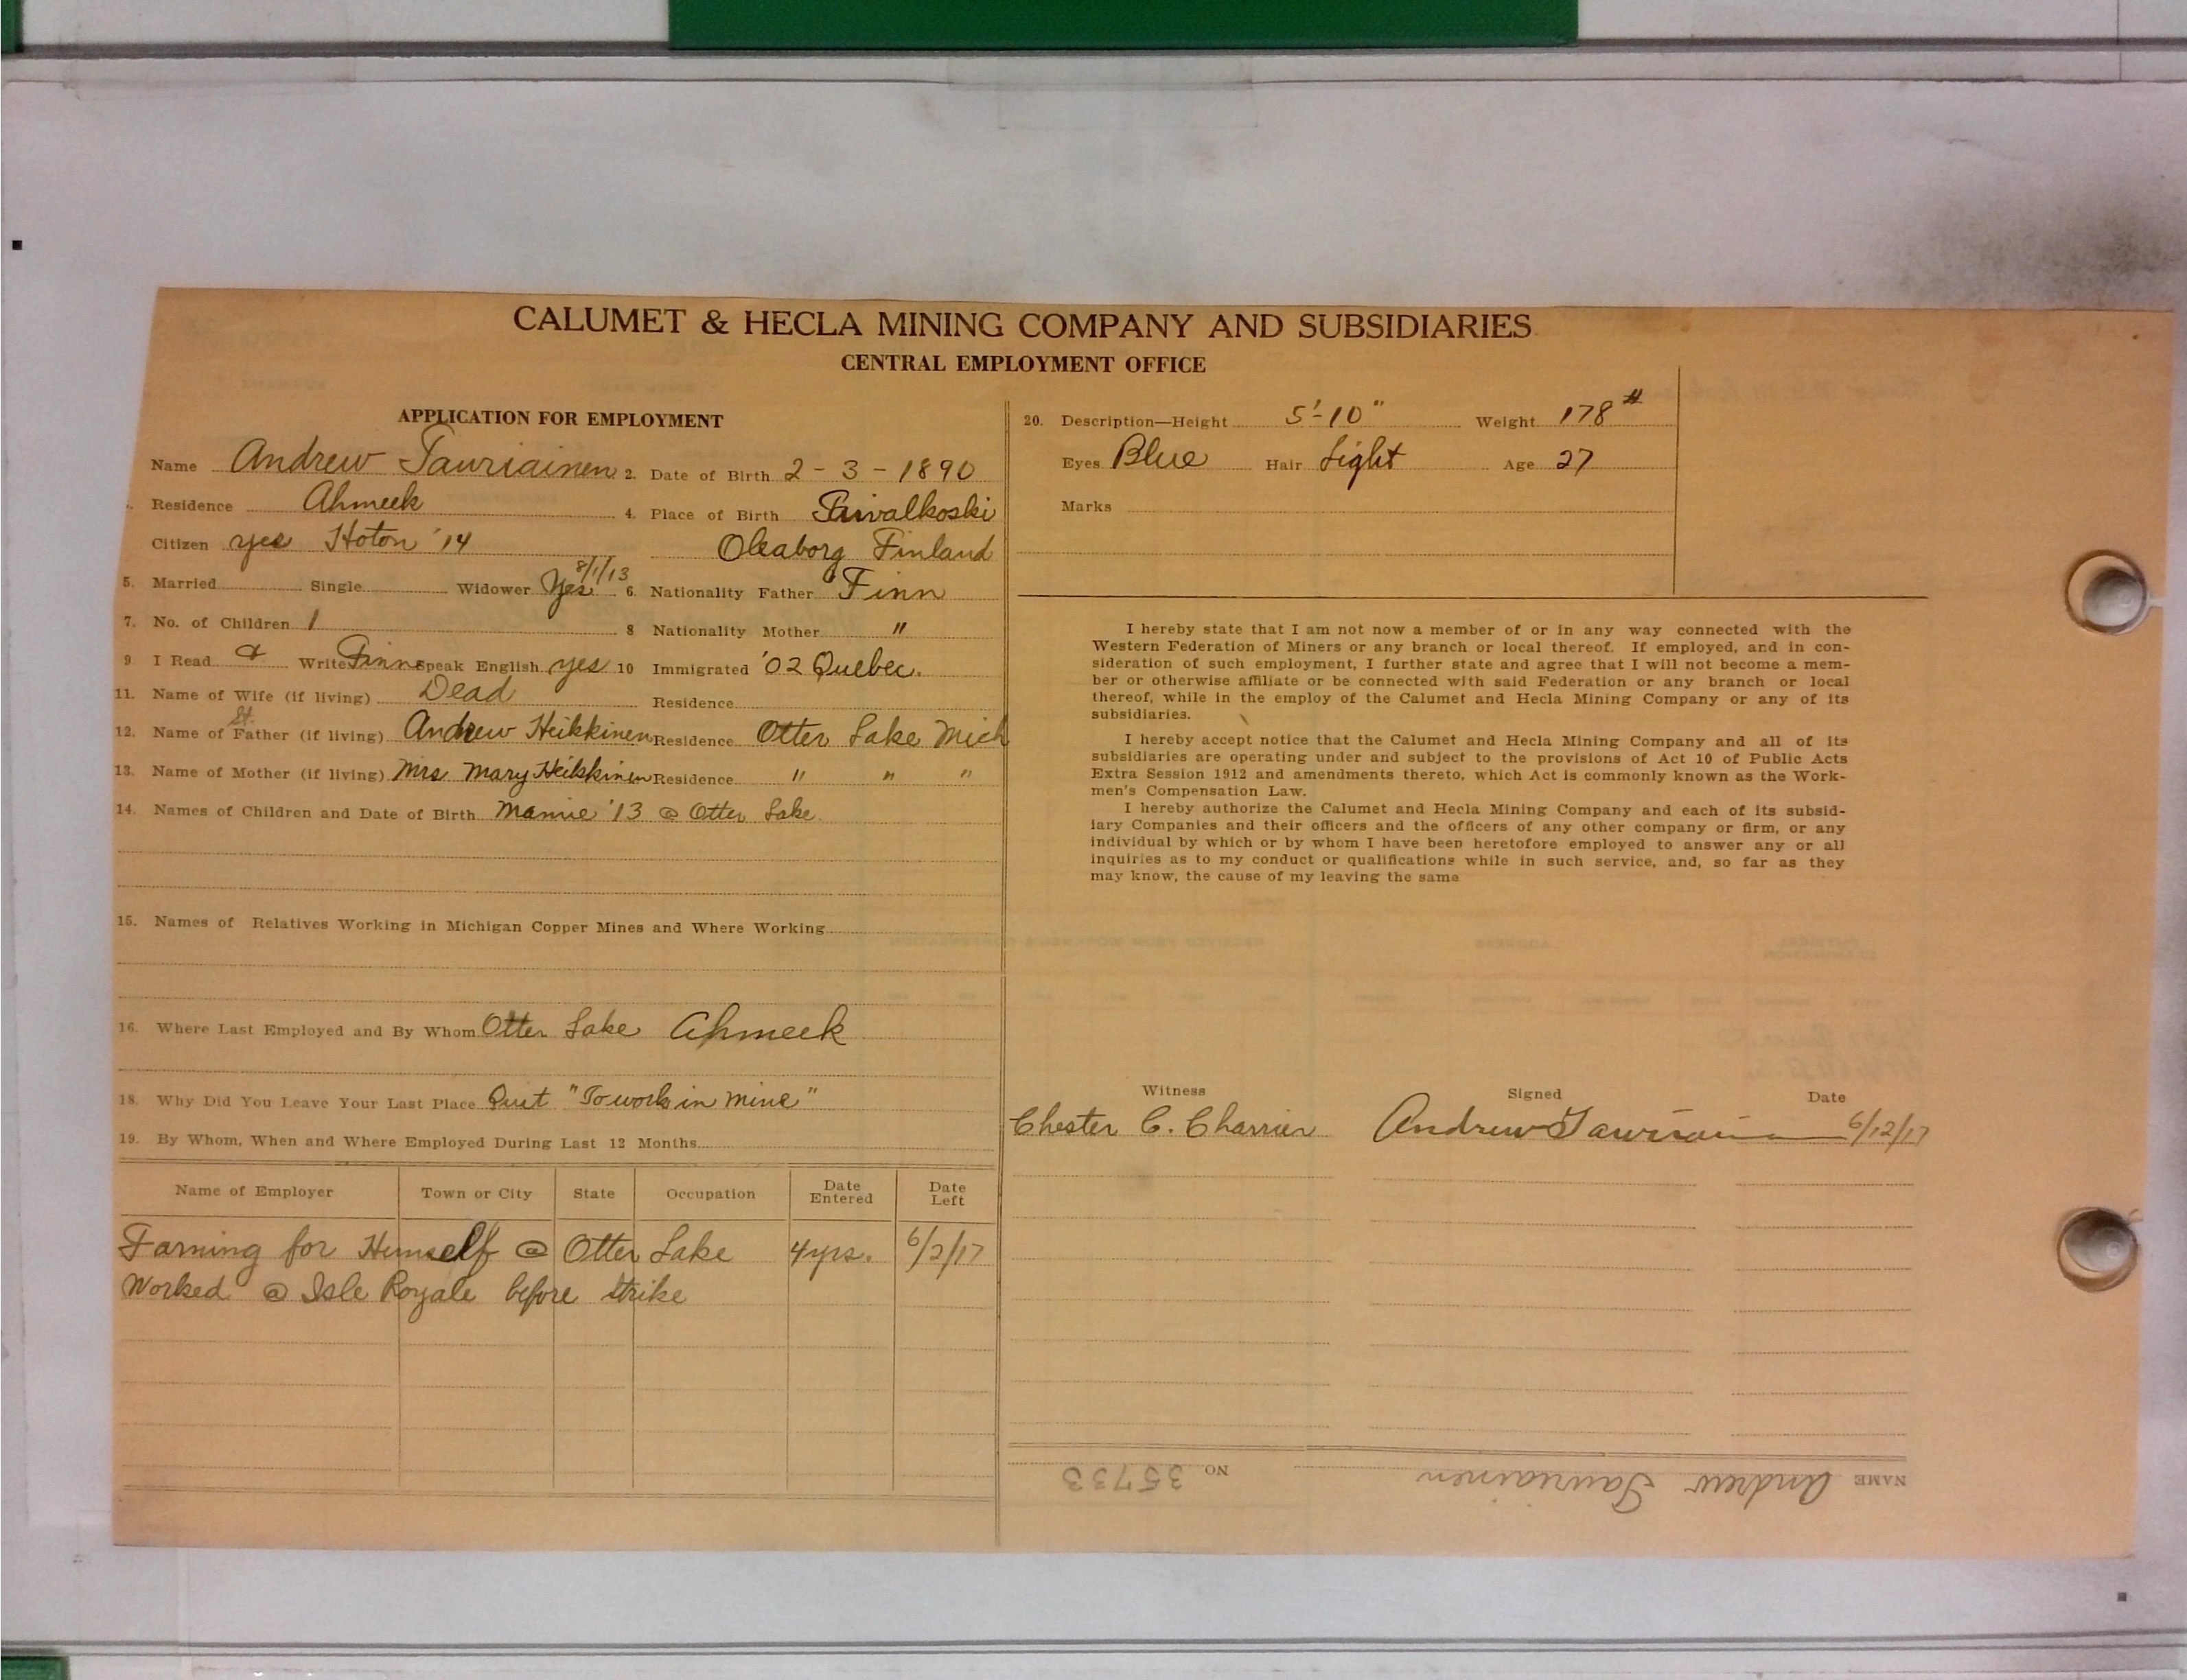 CALUMET & HECLA MINING COMPANY AND SUBSIDIARIES
CENTRAL EMPLOYMENT OFFICE
APPLICATION FOR EMPLOYMENT
Name Andrew Tauriainen 2. Date of Birth 2 - 3 - 1890
Residence Ahmeek 4. Place of Birth
Citizen yes Hoton '14 Oleaborg Finland
8/1/13
5. Married Single Widower Yes 6. Nationality Father Finn
7. No. of Children 1 8 Nationality Mother "
9 I Read & Write Finn Speak English yes 10 Immigrated '02 Quebec.
11. Name of Wife (if living) Dead Residence
St.
12. Name of Father (if living) Andrew Heikkinen Residence Otter Lake Mich
13. Name of Mother (if living) Mrs Mary Heikkinen Residence " " "
14. Names of Children and Date of Birth Mamie '13 @ Otter Lake
15. Names of Relatives Working in Michigan Copper Mines and Where Working
16. Where Last Employed and By Whom Otter Lake Ahmeek
18. Why Did You Leave Your Last Place Quit "To work in mine"
19. By Whom, When and Where Employed During Last 12 Months
Name of Employer Town or City State Occupation Date Entered Date Left
Farming for Himself @ Otter Lake 4 yrs. 6/2/17
Worked @ Isle Royale before strike
20. Description—Height 5'-10" Weight 178#
Eyes Blue Hair Light Age 27
Marks
I hereby state that I am not now a member of or in any way connected with the
Western Federation of Miners or any branch or local thereof. If employed, and in con-
sideration of such employment, I further state and agree that I will not become a mem-
ber or otherwise affiliate or be connected with said Federation or any branch or local
thereof, while in the employ of the Calumet and Hecla Mining Company or any of its
subsidiaries.
I hereby accept notice that the Calumet and Hecla Mining Company and all of its
subsidiaries are operating under and subject to the provisions of Act 10 of Public Acts
Extra Session 1912 and amendments thereto, which Act is commonly known as the Work-
men's Compensation Law.
I hereby authorize the Calumet and Hecla Mining Company and each of its subsid-
iary Companies and their officers and the officers of any other company or firm, or any
individual by which or by whom I have been heretofore employed to answer any or all
inquiries as to my conduct or qualifications while in such service, and, so far as they
may know, the cause of my leaving the same
Witness Signed Date
Chester C. Charrier Andrew Tauriainen 6/12/17
NAME Andrew Tauriainen NO 35733